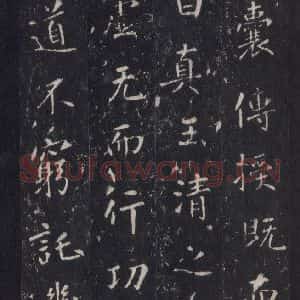 囊傳既
真玉清之
虛无而行功
道不窮託
Shufawang.CN